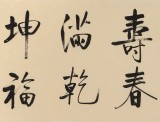 壽春
滿乾
坤福